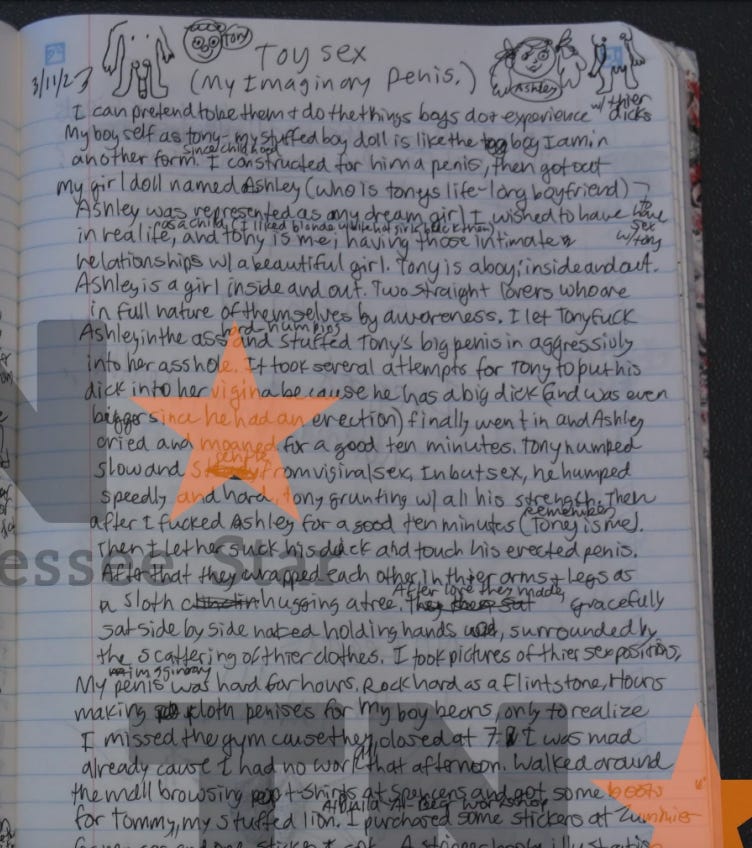 3/11/23
Tony
Toy sex
(My Imaginary Penis.)
Ashley
I can pretend to be them + do the things boys do + experience w/ thier dicks
My boy self as tony - my stuffed boy doll is like the boy I am in
another form. since childhood I constructed for him a penis, then got out
my girl doll named Ashley (who is tonys life-long boyfriend) to have sex w/ tony
Ashley was represented as my dream girl I wished to have
as a child (I liked blonde white hot girls back then)
in real life, and tony is me; having those intimate
relationships w/ a beautiful girl. Tony is a boy; inside and out.
Ashley is a girl inside and out. Two straight lovers who are
in full nature of themselves by awareness. I let Tony fuck
Ashley in the ass hard humping and stuffed Tony's big penis in aggressivly
into her asshole. It took several attempts for Tony to put his
dick into her vigina because he has a big dick (and was even
bigger since he had an erection) finally went in and Ashley
cried and moaned for a good ten minutes. Tony humped
slow and gentle from viginal sex. In but sex, he humped
speedly and hard, tony grunting w/ all his strength. Then
after I fucked Ashley for a good ten minutes (remember Tony is me).
Then I let her suck his dick and touch his erected penis.
After that they wrapped each other in thier arms + legs as
a sloth hugging a tree. After love they made, gracefully
sat side by side naked holding hands, surrounded by
the scattering of thier clothes. I took pictures of thier sex positions,
My imagginary penis was hard for hours. Rock hard as a flintstone, Hours
making cloth penises for my boy bears, only to realize
I missed the gym cause they closed at 7. I was mad
already cause I had no work that afternoon. Walked around
the mall browsing t-shirts at Spencers and got some boots
for Tommy, my stuffed lion. I purchased some stickers at Zummies
TN
essee Star